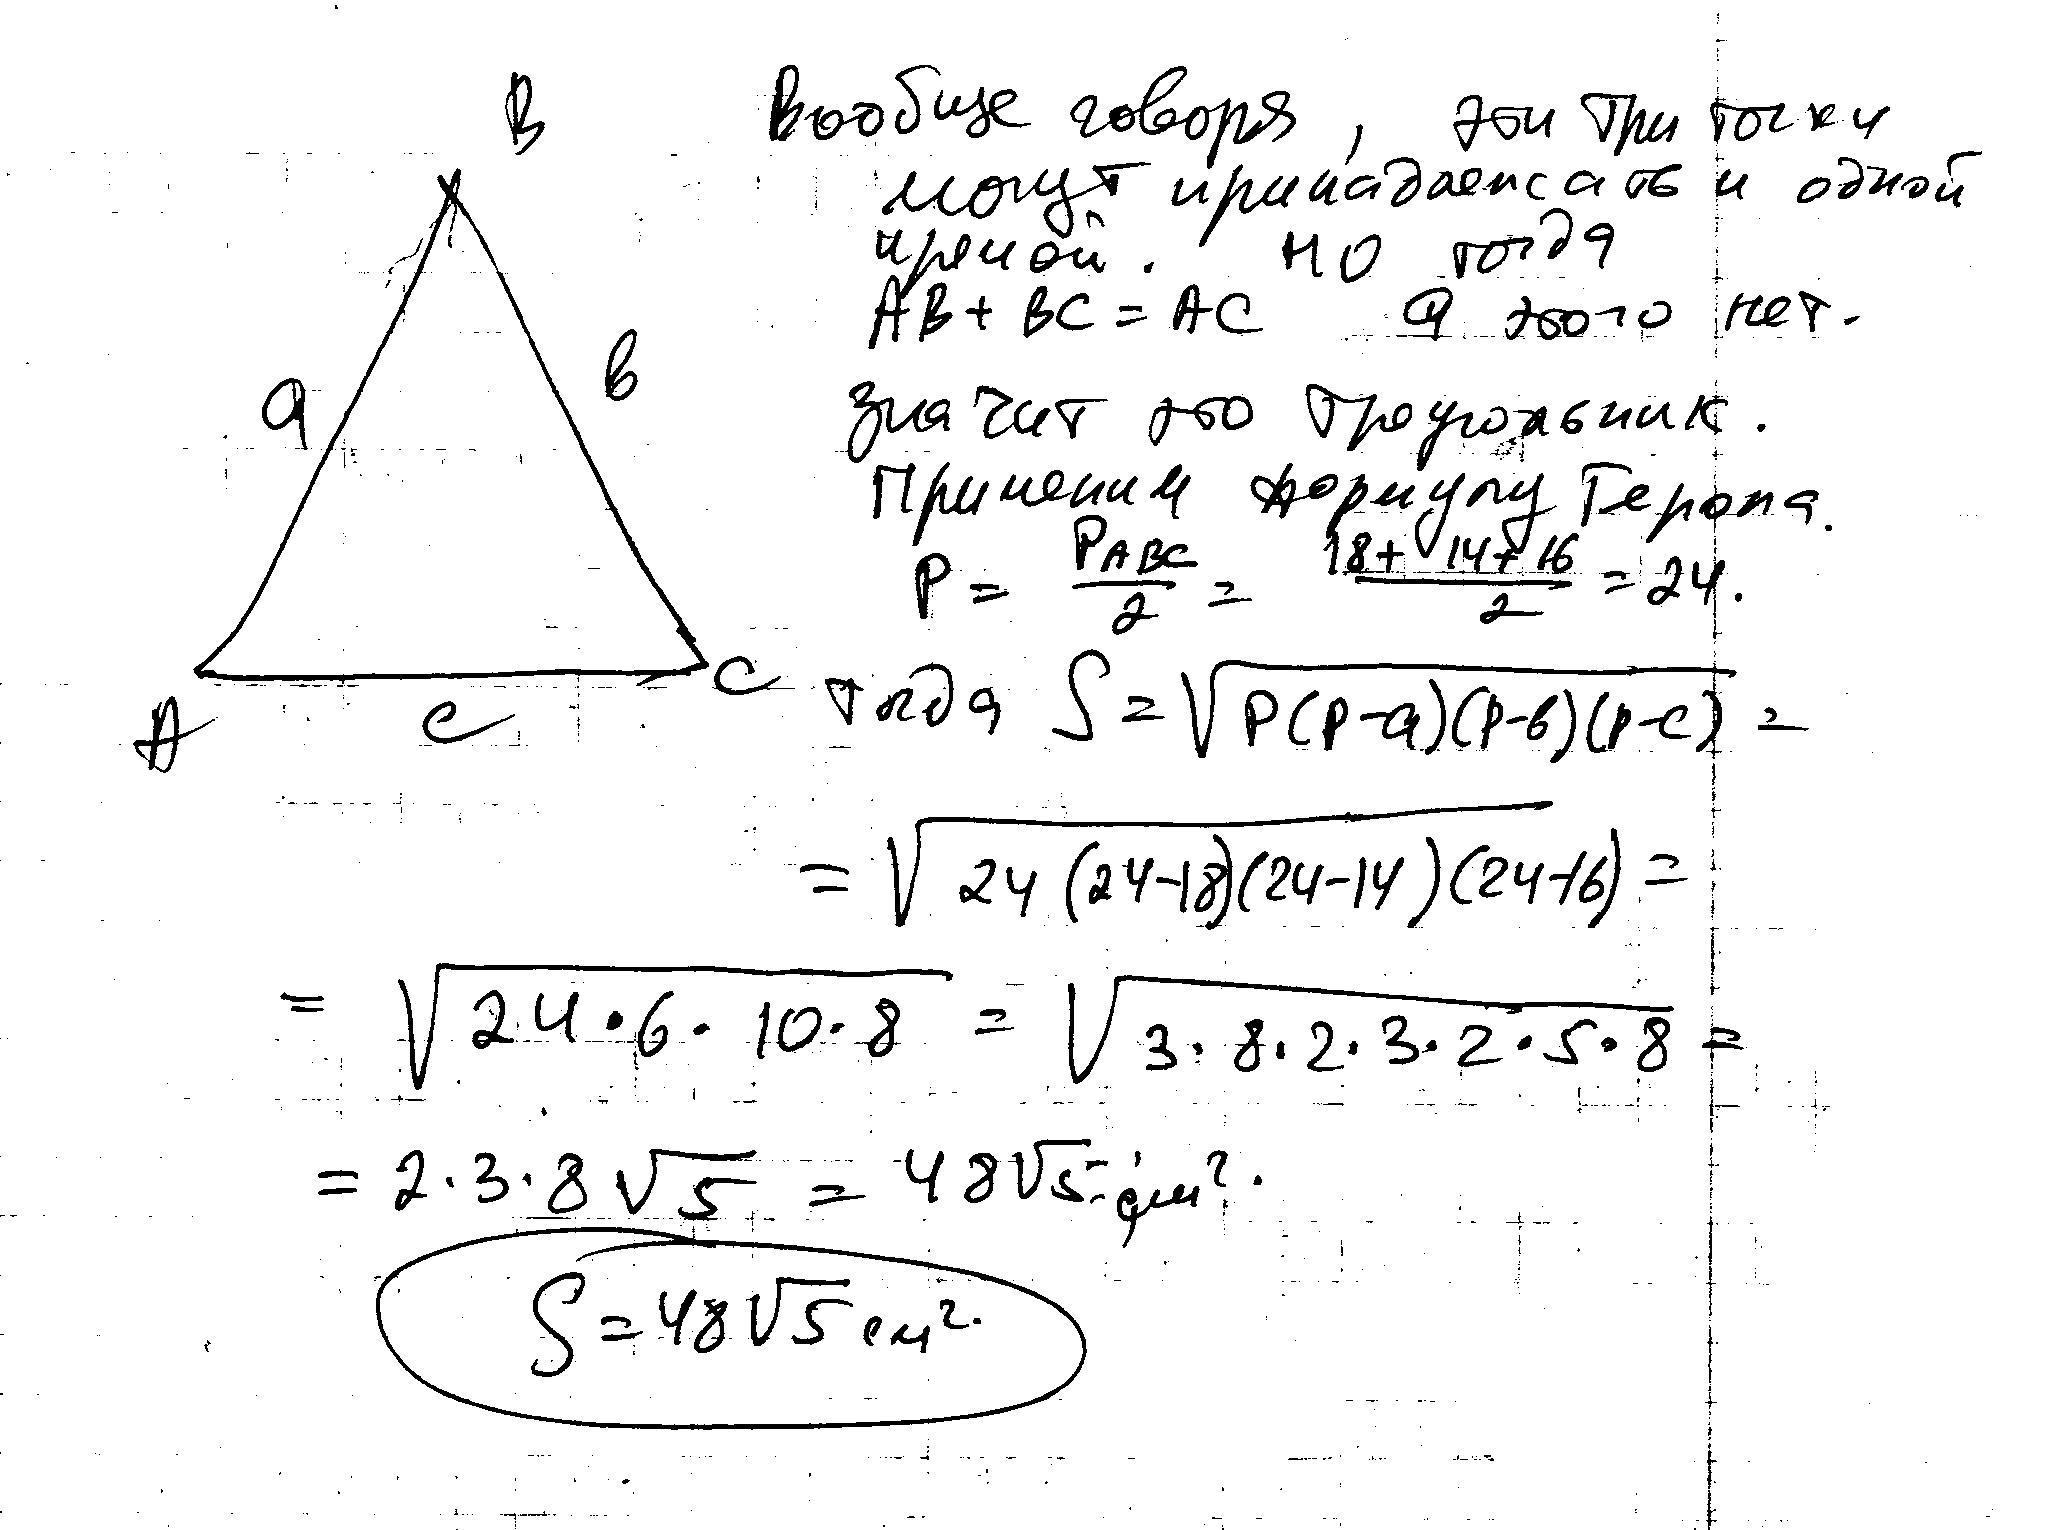 B
Вообще говоря, эти три точки
могут принадлежать и одной
прямой. НО тогда
AB + BC = AC а этого нет.
a
в
значит это треугольник.
Применим формулу Герона.
P = P_ABC / 2 = (18 + 14 + 16) / 2 = 24.
A
c
C
тогда S = √(P(P-a)(P-в)(P-c)) =
= √(24 (24-18)(24-14)(24-16)) =
= √(24 · 6 · 10 · 8) = √(3 · 8 · 2 · 3 · 2 · 5 · 8) =
= 2 · 3 · 8 √5 = 48√5 см².
S = 48√5 см².